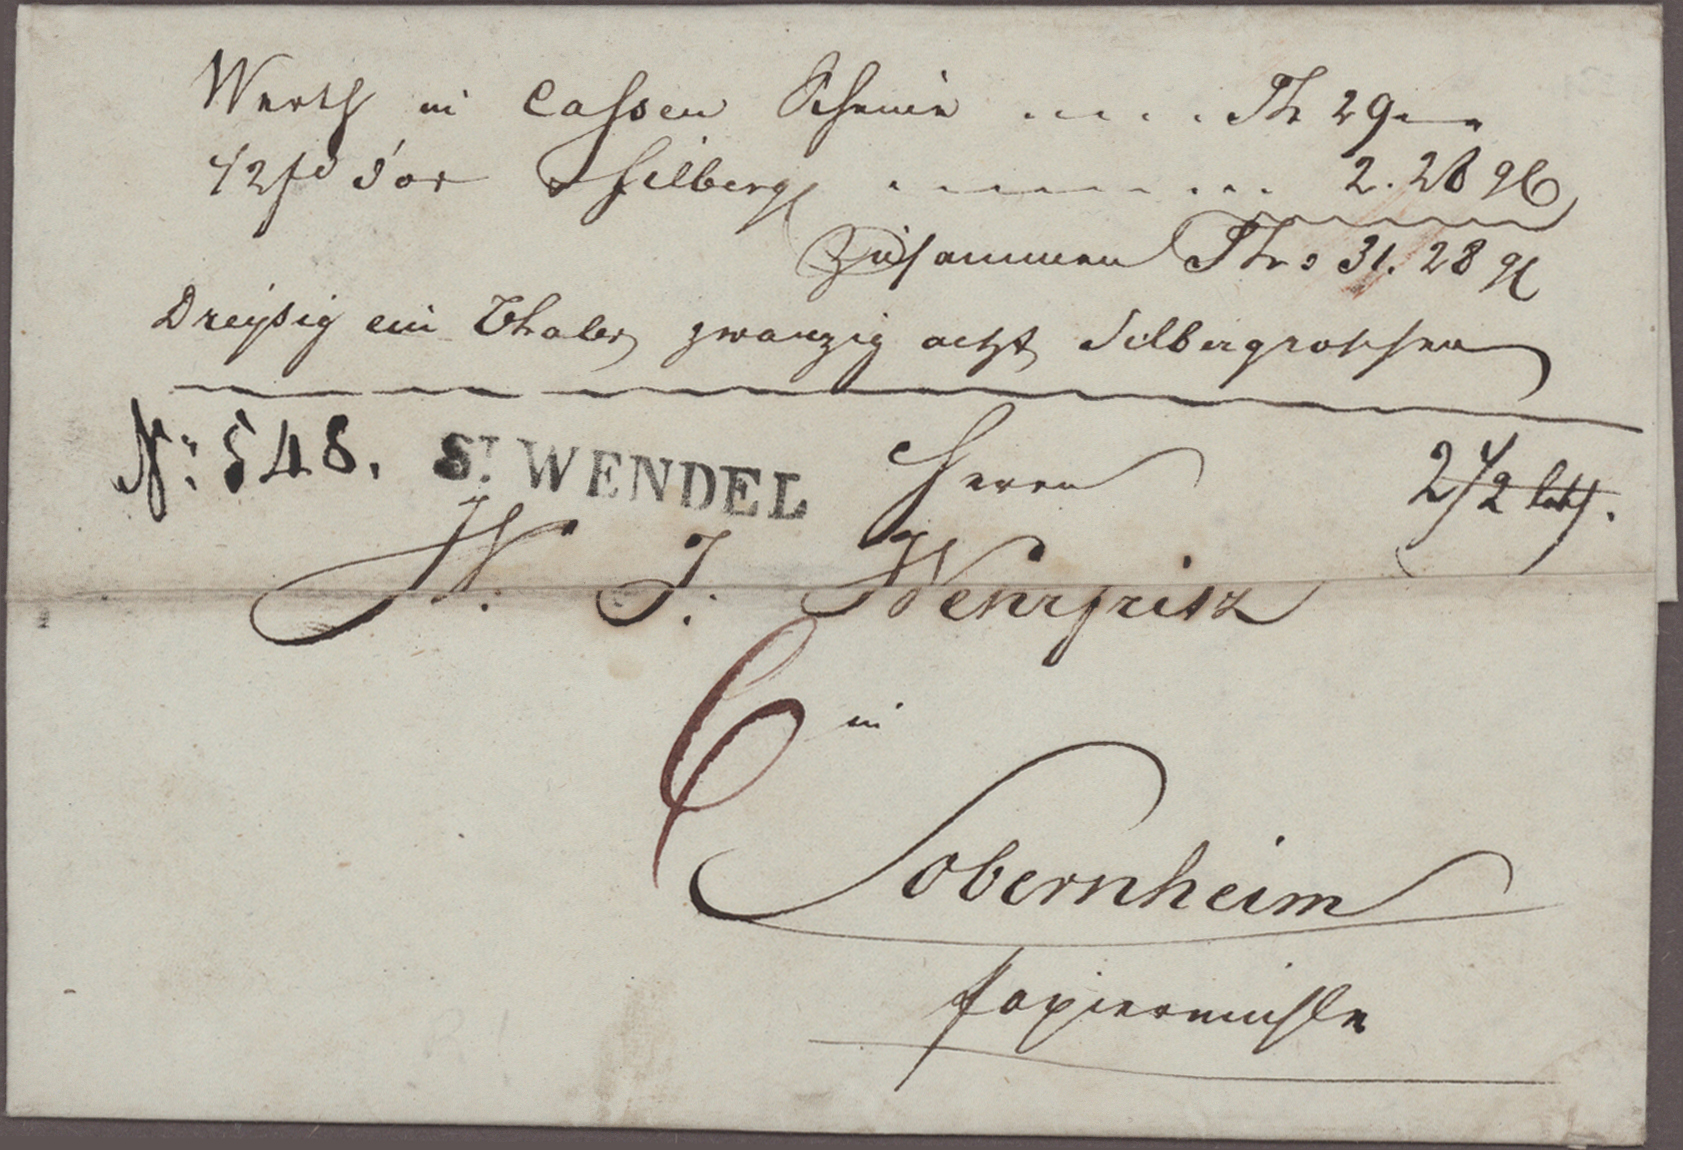 Werth in Cassen Scheine .... Th 29 —
2. 28
Zusammen Thr: 31. 28
Dreyßig ein Thaler zwanzig acht Silbergroschen
No: 548. ST WENDEL Herrn 2 1/2 loth.
W. J. Wehrfritz
6 in
Sobernheim
Papiermühle